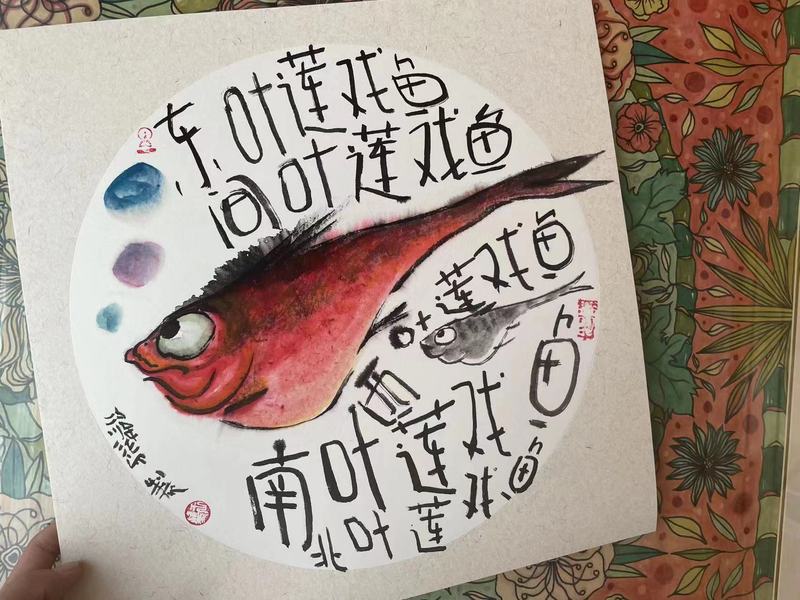 东叶莲戏鱼
间叶莲戏鱼
西叶莲戏鱼
南叶莲戏鱼
北叶莲戏鱼